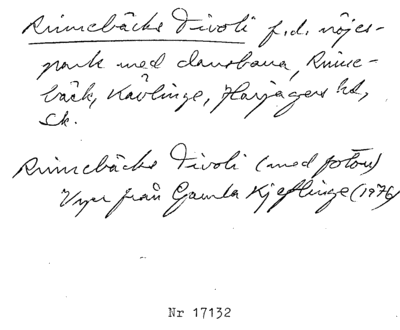 Rinnebäcks Tivoli f.d. nöjes-
park med dansbana, Rinne-
bäck, Kävlinge, Harjagers hd,
Sk.
Rinnebäcks Tivoli (med foton)
Vyer från Gamla Kjeflinge (1976)
Nr 17132